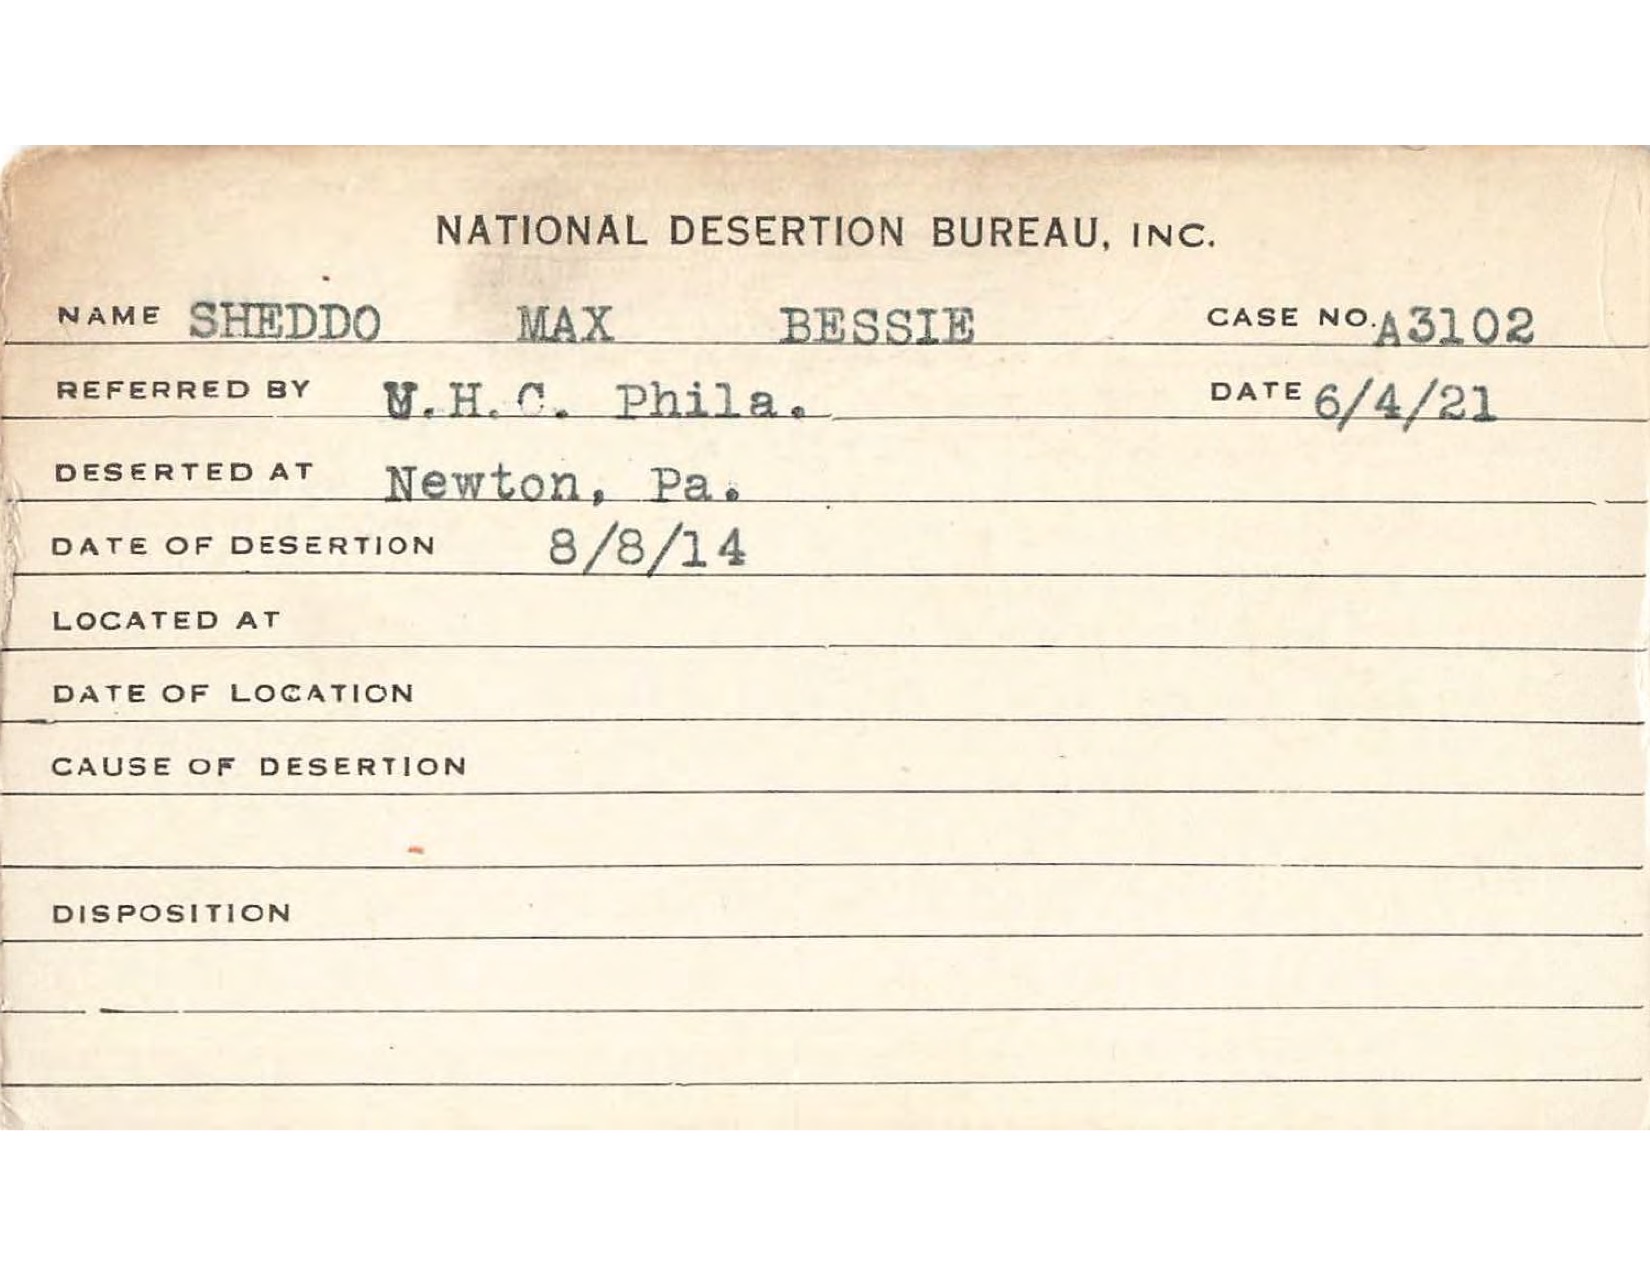 NATIONAL DESERTION BUREAU, INC.
NAME SHEDDO MAX BESSIE CASE NO. A3102
REFERRED BY U.H.C. Phila. DATE 6/4/21
DESERTED AT Newton, Pa.
DATE OF DESERTION 8/8/14
LOCATED AT
DATE OF LOCATION
CAUSE OF DESERTION
DISPOSITION